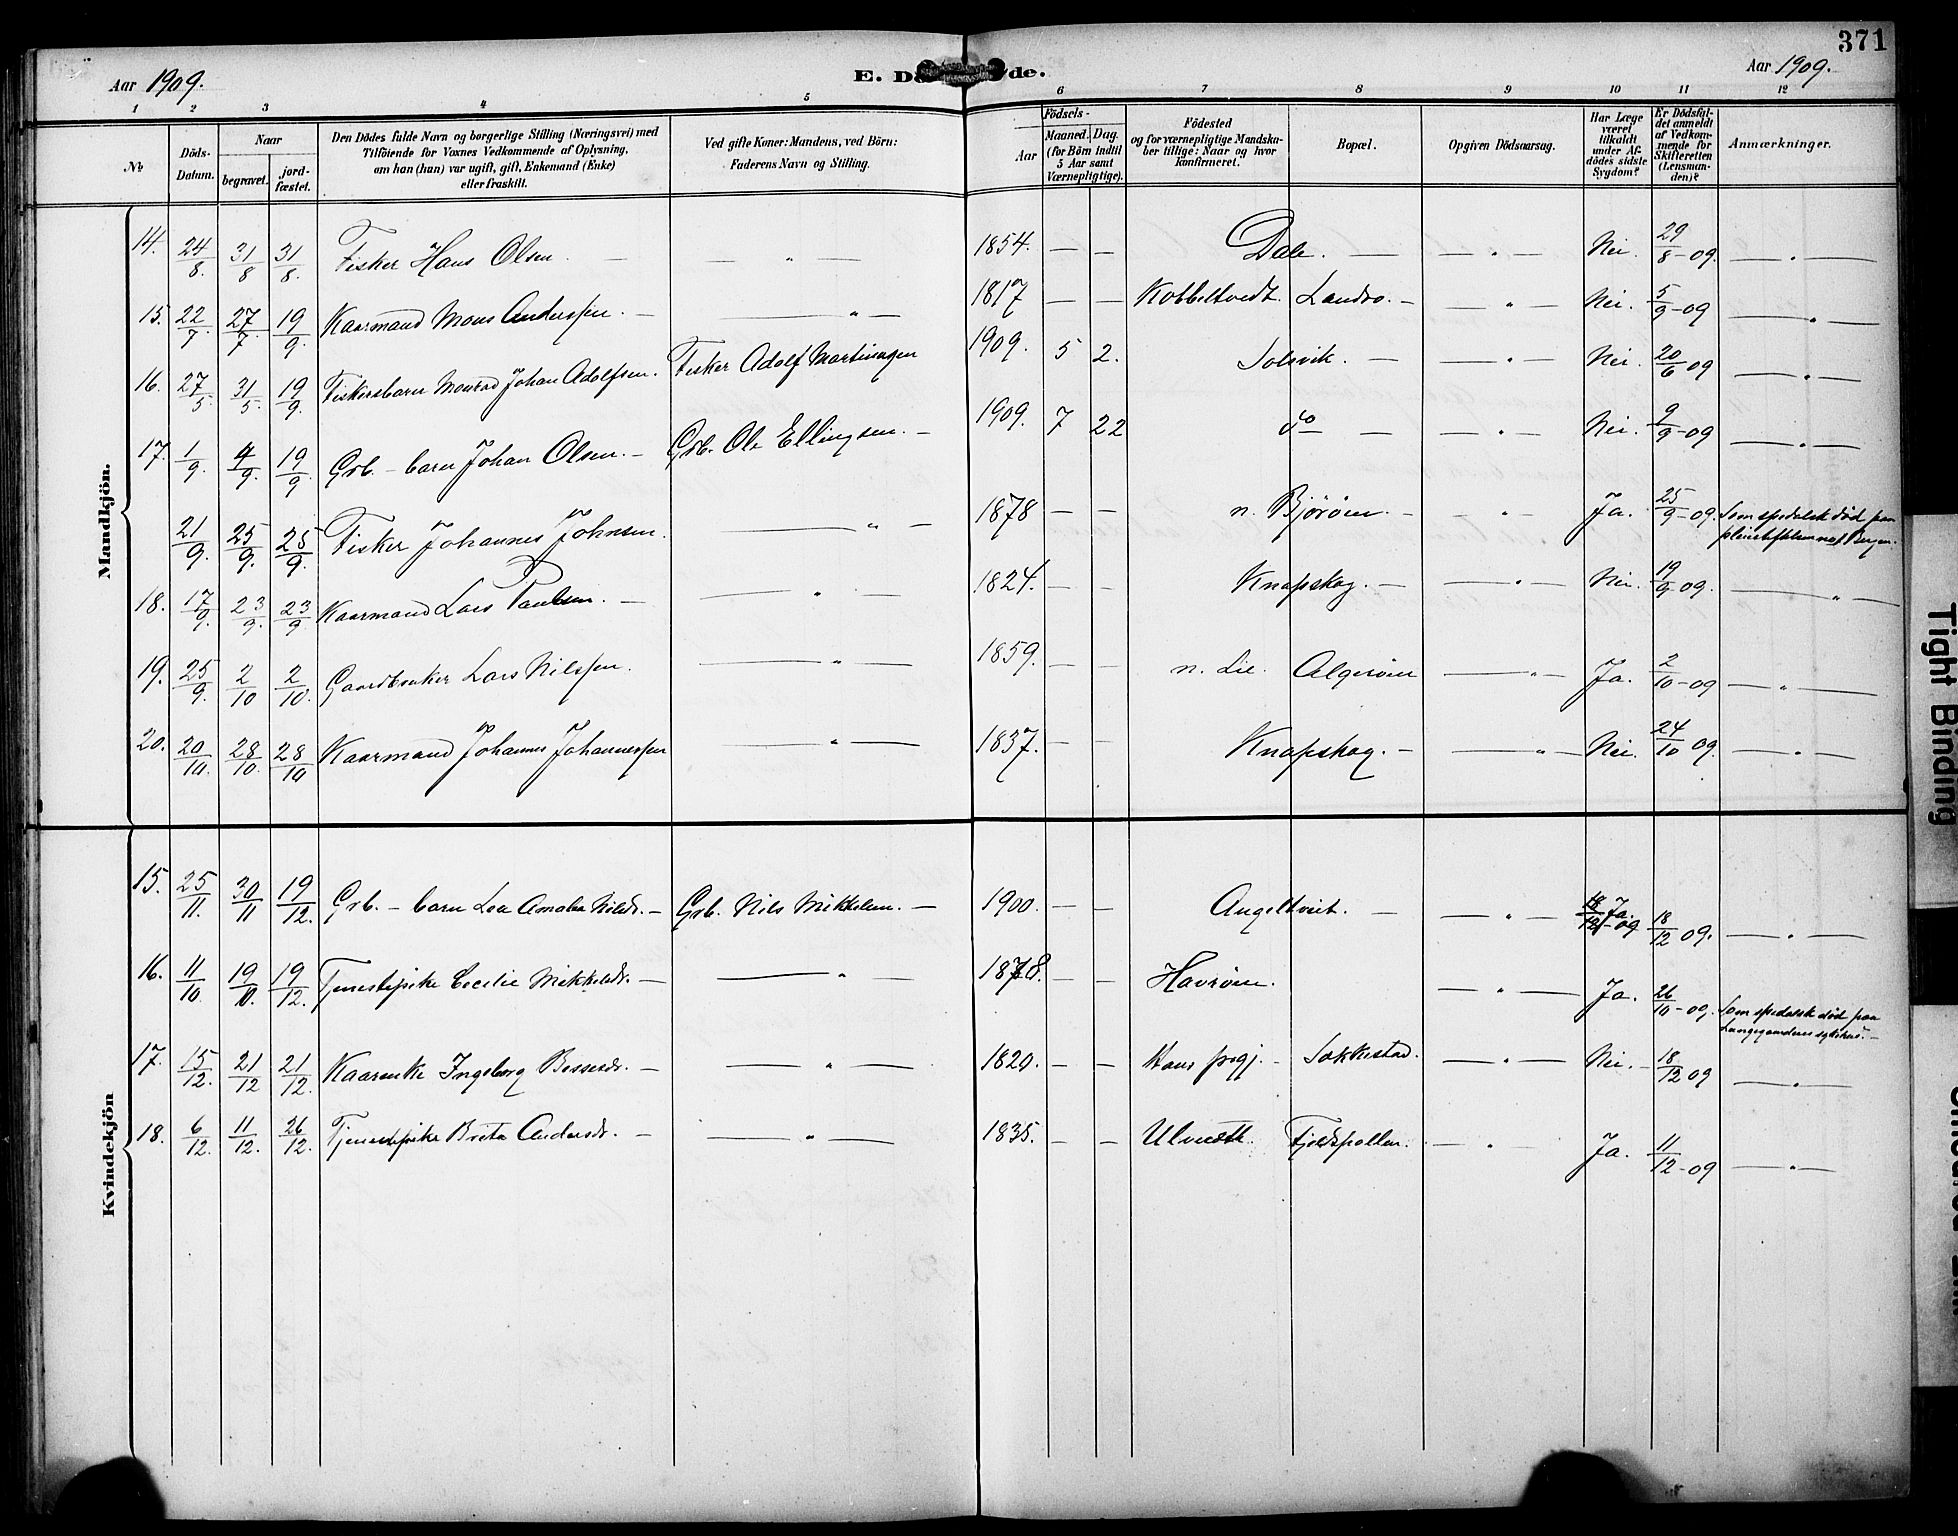 371
Aar 1909.
Aar 1909.
1 2 3 4 5 6 7 8 9 10 11 12
№
Döds-Datum.
Naar
begravet.
jord-fæstet.
Den Dödes fulde Navn og borgerlige Stilling (Næringsvei) med
Tilföiende for Voxnes Vedkommende af Oplysning,
om han (hun) var ugift, gift, Enkemand (Enke)
eller fraskilt.
Ved gifte Koner: Mandens, ved Börn:
Faderens Navn og Stilling.
Födsels-
Aar
Maaned. Dag.
(for Börn indtil
5 Aar samt
Værnepligtige).
Födested
og for værnepligtige Mandska-
ber tillige: Naar og hvor
konfirmeret.
Bopæl.
Opgiven Dödsaarsag.
Har Læge
været
tilkaldt
under Af-
dödes sidste
Sygdom?
Er Dödsfal-
det anmeldt
af Vedkom-
mende for
Skifteretten
(Lensman-
den)?
Anmærkninger.
Mandkjön.
14. 24/8. 31/8 31/8. Fisker Hans Olsen. — — " — 1854. — — Dale. — — " — Nei. 29/8-09. — " —
15. 22/7. 27/7 19/9. Kaarmand Mons Anderssen. — — " — 1817 — — Kobbeltvedt. Landro. — — " — Nei. 5/9-09 — " —
16. 27/5. 31/5. 19/9. Fiskersbarn Monrad Johan Adolfsen. Fisker Adolf Martinusen 1909. 5 2. Solsvik. — — " — Nei. 20/6 09 — " —
17. 1/9. 4/9. 19/9 Grb. – barn Johan Olsen. — Grb. Ole Ellingsen. — 1909. 7 22 do — — " — Nei. 9/9-09 — " —
21/9. 25/9. 25/9. Fisker Johannes Johnsen. — " — 1878 — — n. Bjørøen. — — " — Ja. 25/9-09. Som spedalsk død paa
pleiestiftelsen no 1 Bergen.
18. 17/9. 23/9. 23/9 Kaarmand Lars Paulsen. — — " — 1824. — — Knapskog. — — " — Nei. 19/9 09. — " —
19. 25/9. 2/10 2/10. Gaardbruker Lars Nilssen. — " — 1859. — — n. Lie. Algerøen — " — Ja. 2/10-09 — " —
20. 20/10. 28/10. 28/10 Kaarmand Johannes Johannessen — " — 1837. — — Knapskog. — — " — Nei. 24/10 09. — " —
Kvindekjön
15. 25/11. 30/11 19/12. Grb. – barn Lea Amalia Nilsdr. — Grb. Nils Mikkelsen. — 1900. — — Angeltveit. — — " — Ja. 18/12-09 18/12 09. — " —
16. 11/10. 19/10. 19/12. Tjenestepike Cecilie Mikkelsdr. — — " — 1878. — — Havrøen. — " — Ja. 26/10-09. Som spedalsk død paa
Lungegaardens sykehus. —
17. 15/12. 21/12 21/12. Kaarenke Ingeborg Bessesdr. — — " — 1820. — — Haus prgj. — Søkkestad. — " — Nei. — 18/12 09 — " —
18. 6/12. 11/12. 26/12. Tjenestepike Brita Andersdr. — — " — 1835. — — Ulveseth. Fjeldspollen. — " — Ja. 11/12-09 — " —
Tight Binding